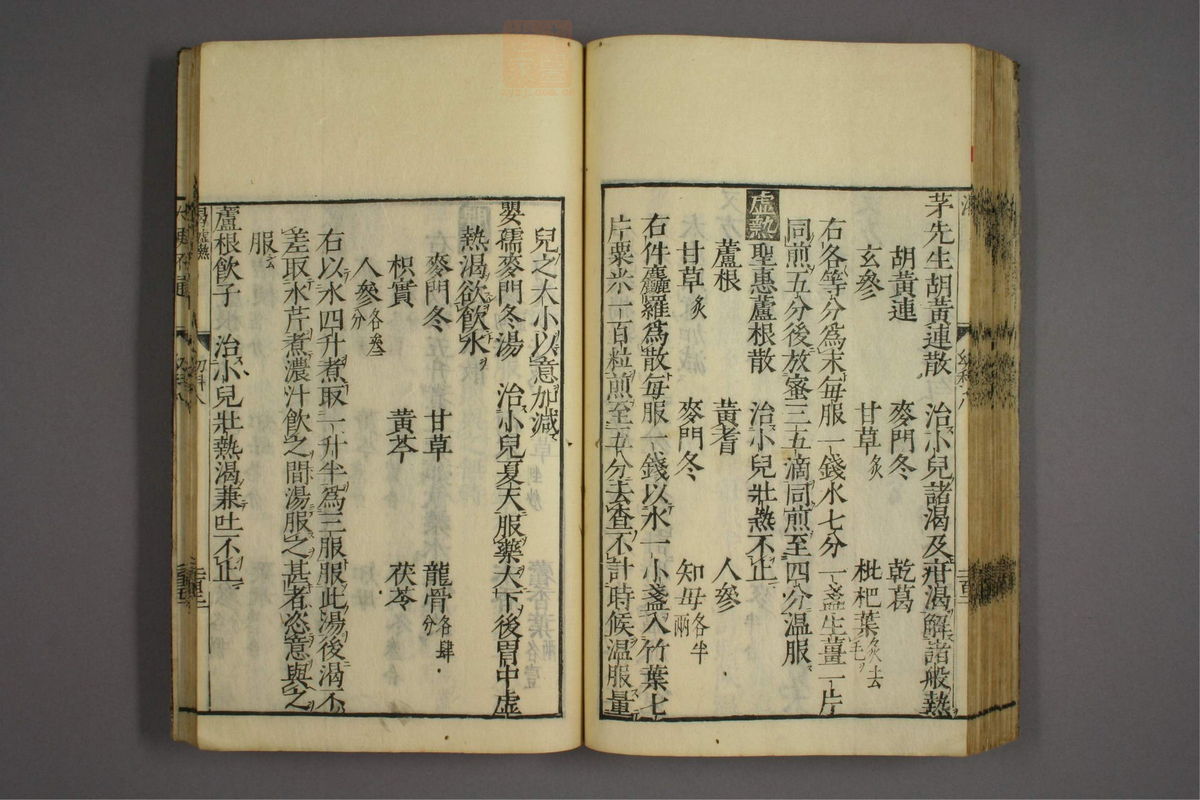 茅先生胡黃連散　治小兒諸渴及疳渴解諸般熱
胡黃連　麥門冬　乾葛
玄參　甘草炙　枇杷葉炙去毛
右各等分爲末每服一錢水七分一盞生薑一片
同煎五分後放蜜三五滴同煎至四分温服
虚熱　聖惠蘆根散　治小兒壯熱不止
蘆根　黃耆　人參
甘草炙　麥門冬　知母各半兩
右件麤羅爲散每服一錢以水一小盞入竹葉七
片粟米一百粒煎至五分去查不計時候温服量
兒之大小以意加減
嬰孺麥門冬湯　治小兒夏天服藥大下後胃中虚
熱渴欲飲水
麥門冬　甘草　龍骨各肆分
枳實　黃芩　茯苓
人參各叁分
右以水四升煮取一升半爲三服服此湯後渴不
差取水芹煮濃汁飲之間湯服之甚者恣意與之
服云
蘆根飲子　治小兒壯熱渴兼吐不止